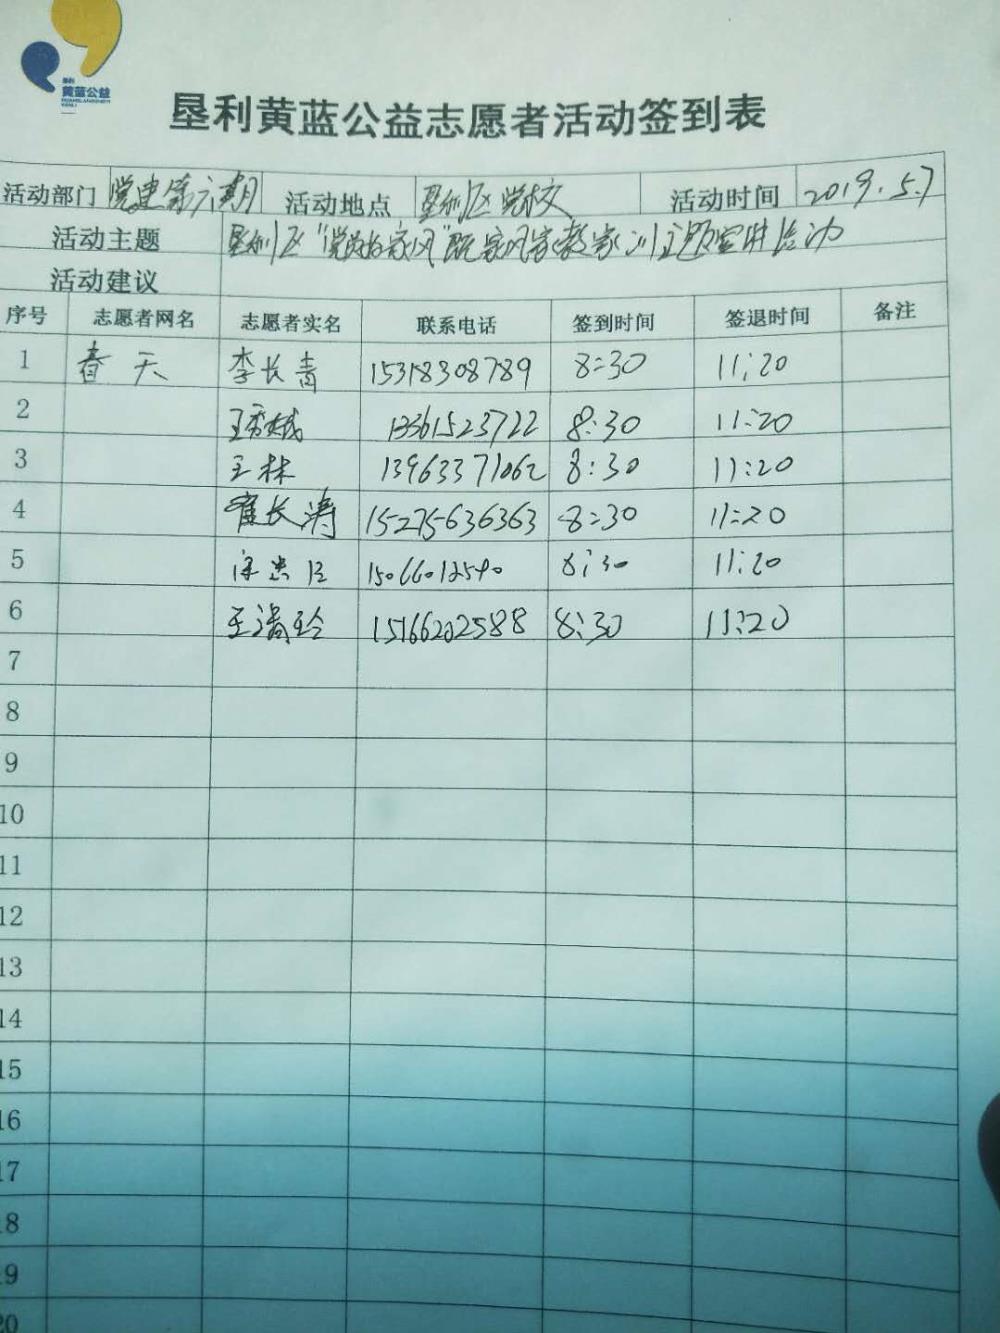 黄蓝公益
垦利黄蓝公益志愿者活动签到表
活动部门 党建第六期 活动地点 垦利区党校 活动时间 2019.5.7
活动主题 垦利区"党员好家风"暨家风家教家训主题宣讲活动
活动建议
序号 志愿者网名 志愿者实名 联系电话 签到时间 签退时间 备注
1 春天 李长青 15318308789 8:30 11:20
2 13361523722 8:30 11:20
3 王林 13963371062 8:30 11:20
4 崔长涛 15275636363 8:30 11:20
5 15066012590 8:30 11:20
6 15166202588 8:30 11:20
7
8
9
10
11
12
13
14
15
16
17
18
19
20